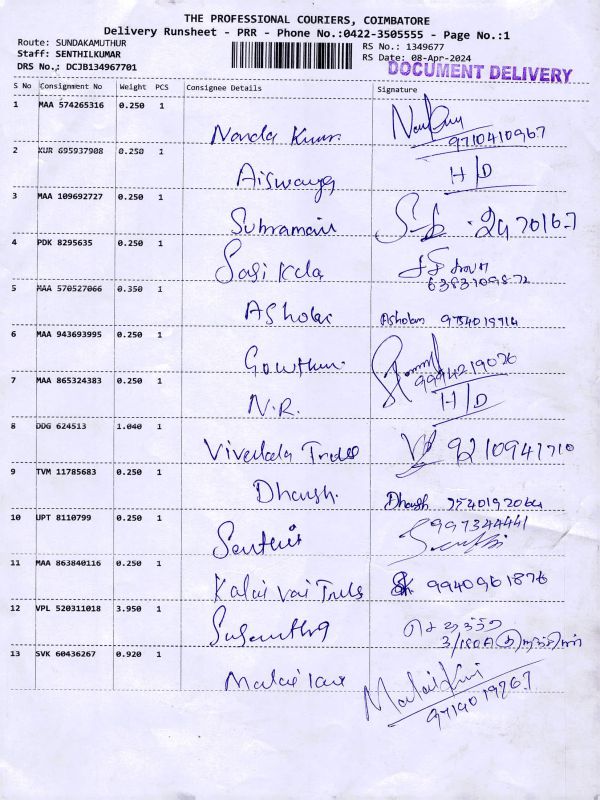 THE PROFESSIONAL COURIERS, COIMBATORE
Delivery Runsheet - PRR - Phone No.:0422-3505555 - Page No.:1
Route: SUNDAKAMUTHUR
Staff: SENTHILKUMAR
DRS No.: DCJB134967701
RS No.: 1349677
RS Date: 08-Apr-2024
DOCUMENT DELIVERY
S No Consignment No Weight PCS Consignee Details Signature
1 MAA 574265316 0.250 1
Nanda Kumar
9710410967
2 KUR 695937908 0.250 1
Aiswarya H/D
3 MAA 109692727 0.250 1
Subramani
4 PDK 8295635 0.250 1
Sasi Kala
5 MAA 570527066 0.350 1
Ashok
6 MAA 943693995 0.250 1
Gowtham
9994219026
7 MAA 865324383 0.250 1
N.R. H/D
8 DDG 624513 1.040 1
Traders 9210941710
9 TVM 11785683 0.250 1
Dharsh. Dharsh
10 UPT 8110799 0.250 1
997344441
11 MAA 863840116 0.250 1
Kalai vai 9940961876
12 VPL 520311018 3.950 1
13 SVK 60436267 0.920 1
9719019267